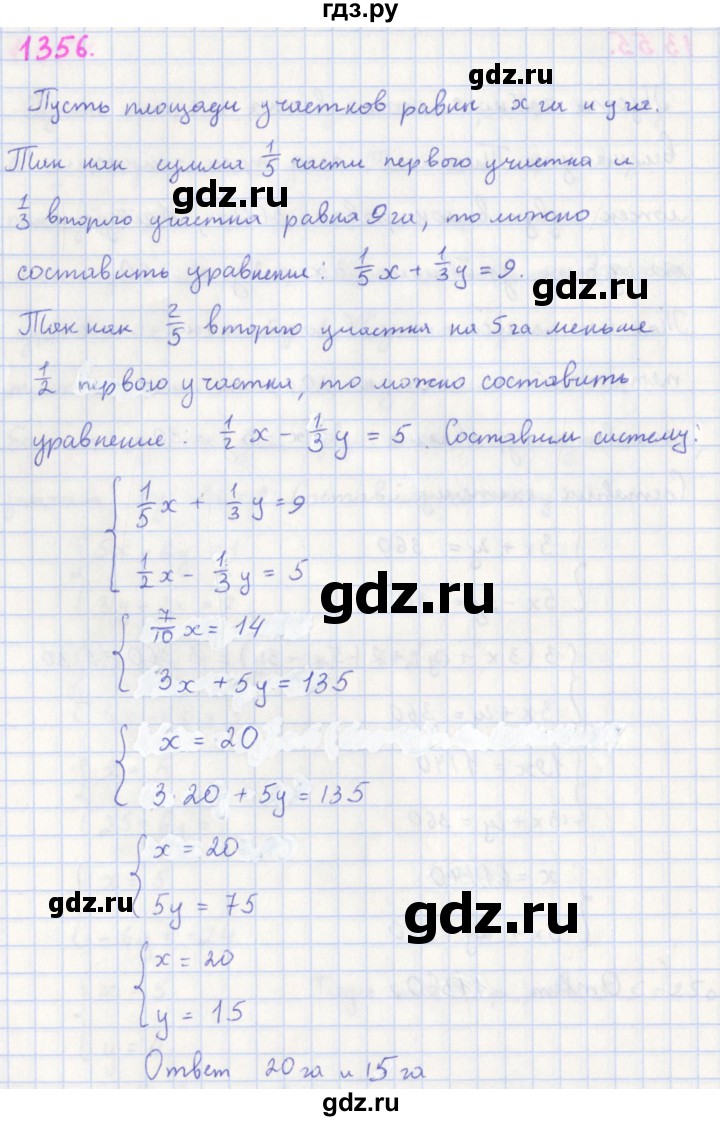 гдз.ру
1356.
Пусть площади участков равны x га и y га.
Так как сумма 1/5 части первого участка и
gdz.ru
1/3 второго участка равна 9 га, то можно
составить уравнение: 1/5 x + 1/3 y = 9.
gdz.ru
Так как 2/5 второго участка на 5 га меньше
1/2 первого участка, то можно составить
уравнение: 1/2 x - 1/3 y = 5. Составим систему:
{ 1/5 x + 1/3 y = 9
1/2 x - 1/3 y = 5
gdz.ru
{ 7/10 x = 14
3x + 5y = 135
{ x = 20
3·20 + 5y = 135
{ x = 20
5y = 75
gdz.ru
gdz.ru
{ x = 20
y = 15
Ответ 20 га и 15 га
gdz.ru